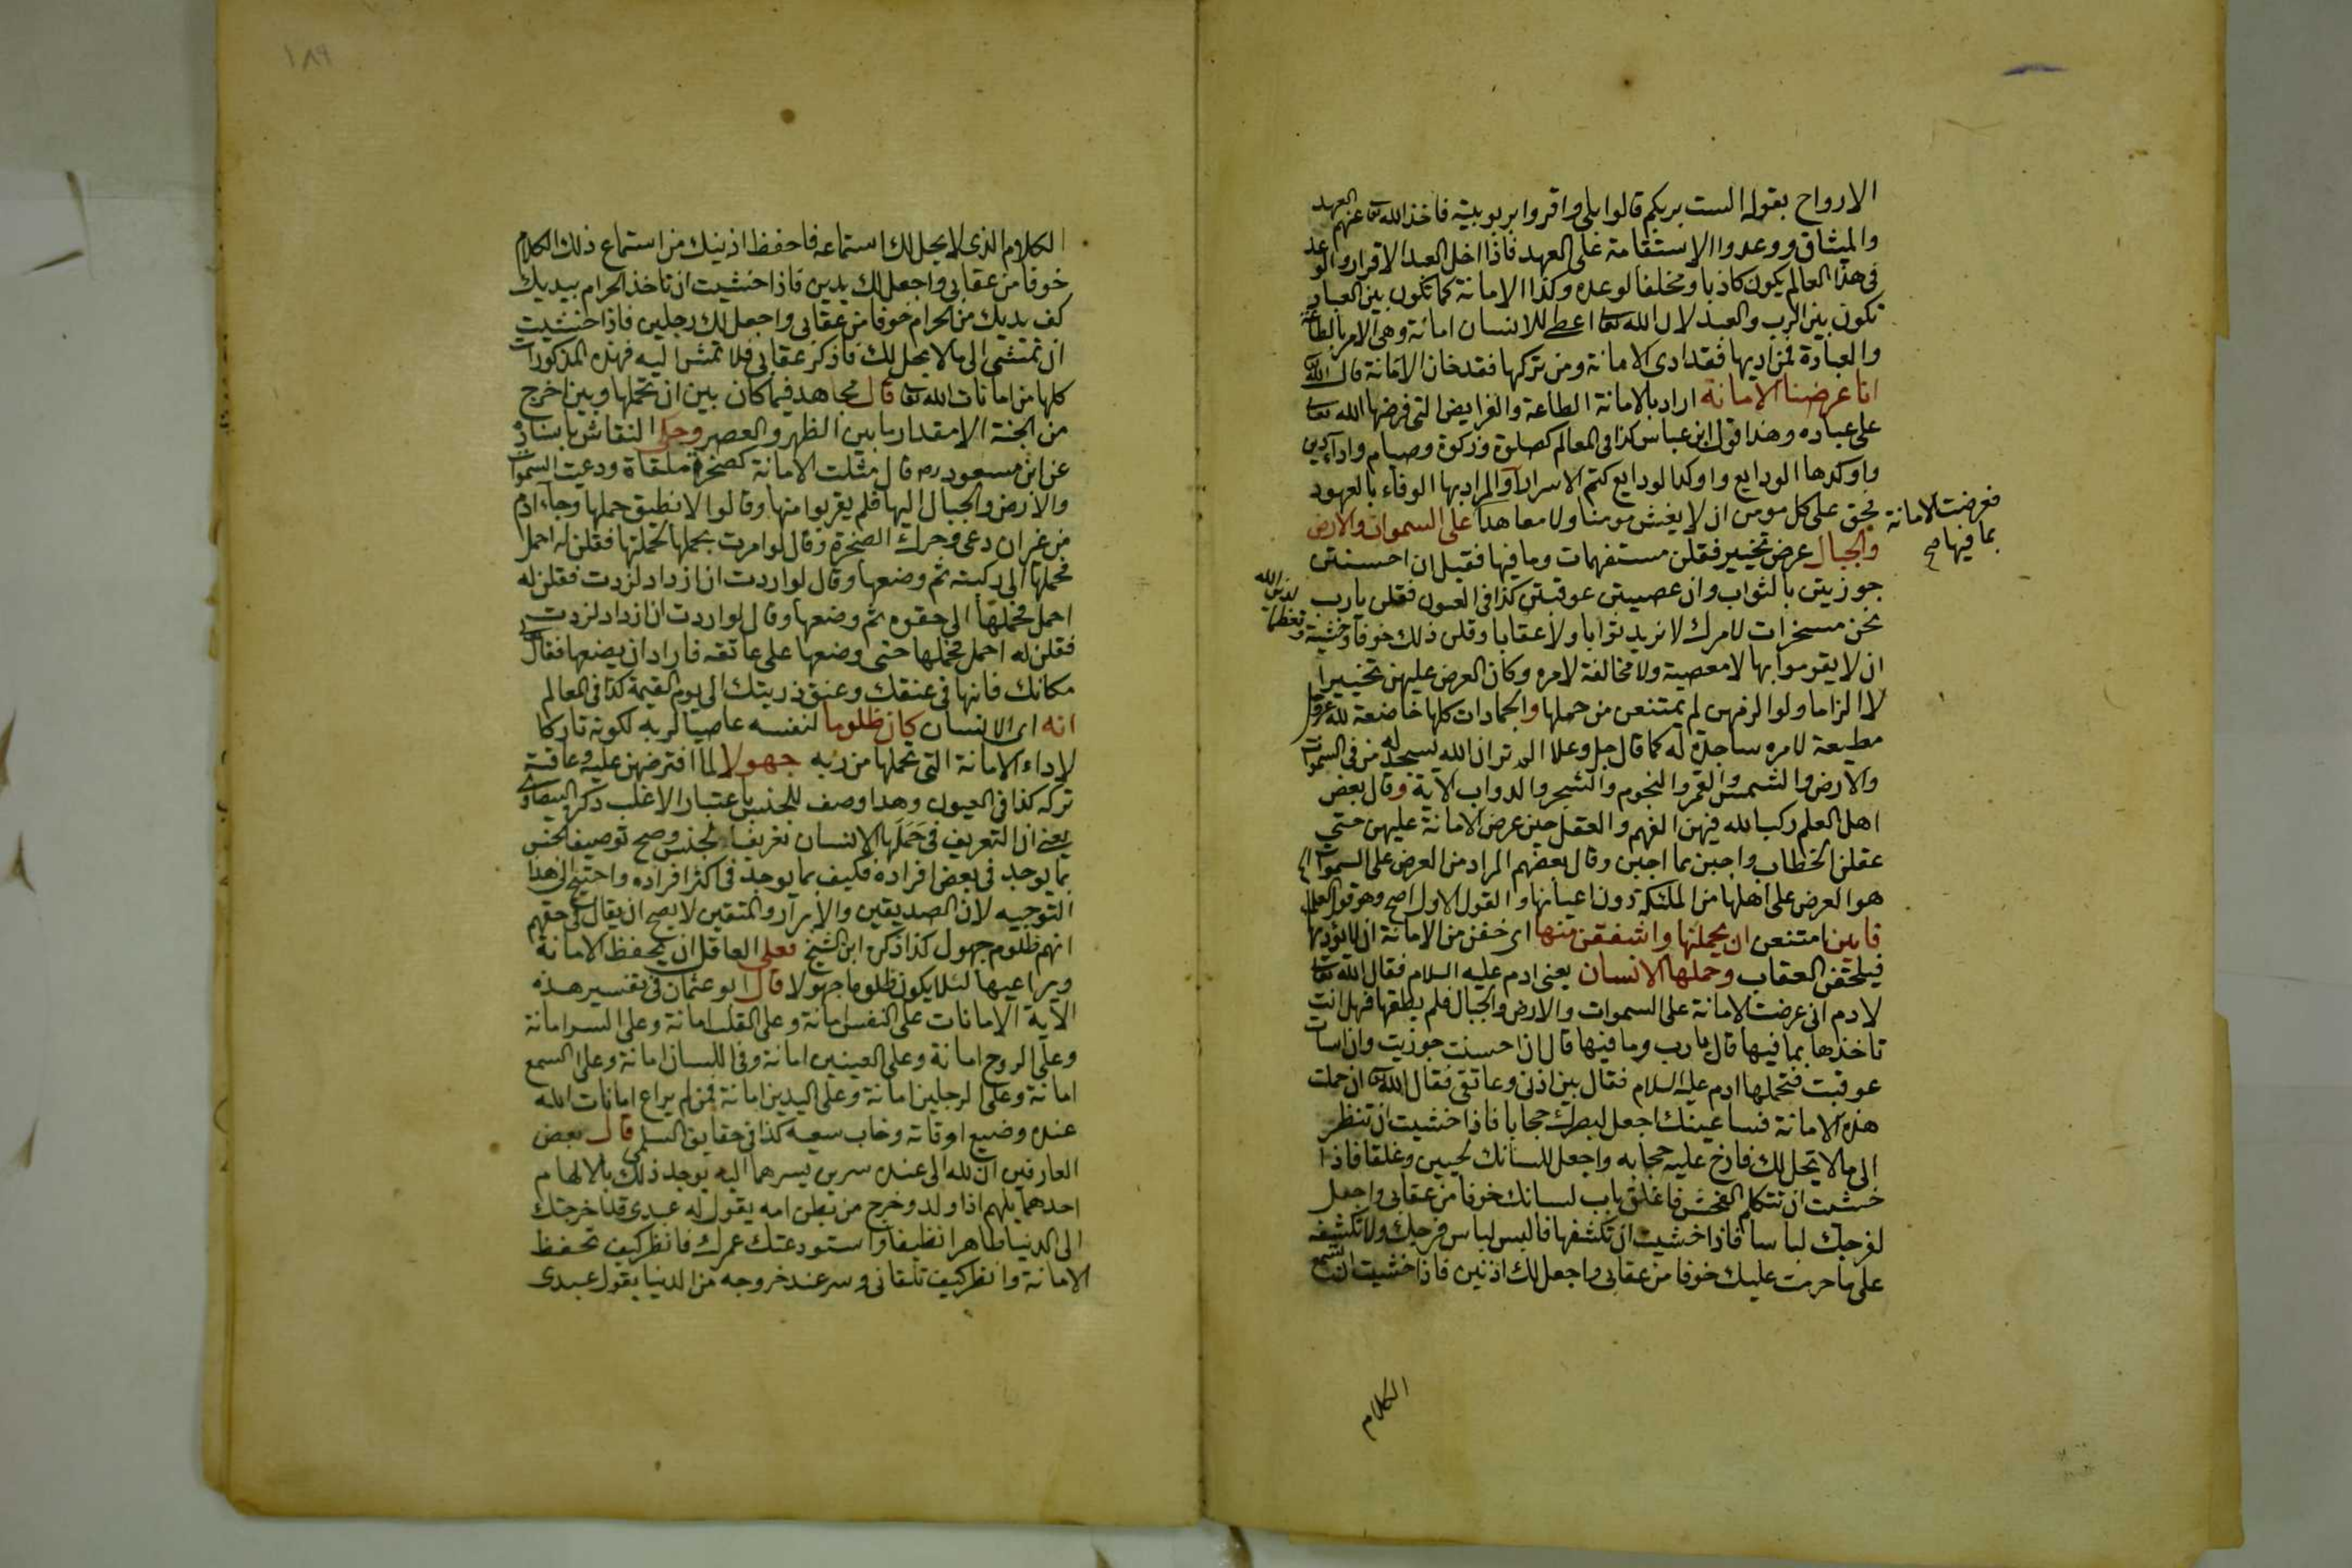 الارواح بقوله الست بربكم قالوا بلى واقروا بربوبيته فاخذ الله تعا عنهم العهد
والميثاق ووعدوا الاستقامة على العهد فاذا اخل العبد الاقرار والوعد
فى هذا العالم يكون كاذبا ومخلفا لوعده وكذا الامانة كما تكون بين العباد
تكون بين الرب والعبد لان الله تعا اعطى للانسان امانة وهى الامر بالطاعة
والعبادة فمن اديها فقد ادى الامانة ومن تركها فقد خان الامانة قال الله تعا
انا عرضنا الامانة اراد بالامانة الطاعة والفرايض التى فرضها الله تعا
على عباده وهذا قول ابن عباس كذا فى المعالم كصلوة وزكوة وصيام واداء دين
واوكدها الودايع واوكد الودايع كتم الاسرار والمراد بها الوفاء بالعهود
فحق على كل مومن ان لا يغش مومنا ولا معاهدا على السموات والارض
والجبال عرض تخيير فقلن مستفهمات وما فيها فقيل ان احسنتن
فعرضت الامانة
بما فيها صح
جوزيتن بالثواب وان عصيتن عوقبتن كذا فى العيون فقلن يا رب
نحن مسخرات لامرك لا نريد ثوابا ولا عقابا وقلن ذلك خوفا وخشية
لدين الله
وتعظيما
ان لا يقوموا بها لا معصية ولا مخالفة لامره وكان العرض عليهن تخييرا
لا الزاما ولو الزمهن لم يمتنعن من حملها والجمادات كلها خاضعة لله عز وجل
مطيعة لامره ساجدة له كما قال جل وعلا الم تر ان الله يسجد له من فى السموات
والارض والشمس والقمر والنجوم والشجر والدواب الاية وقال بعض
اهل العلم ركب الله فيهن الفهم والعقل حين عرض الامانة عليهن حتى
عقلن الخطاب واجبن بما اجبن وقال بعضهم المراد من العرض على السموات
هو العرض على اهلها من الملئكة دون اعيانها والقول الاول اصح وهو قول العلماء
فابين امتنعن ان يحملنها واشفقن منها اى خفن من الامانة ان لا يؤدينها
فيلحقن العقاب وحملها الانسان يعنى ادم عليه السلام فقال الله تعا
لادم انى عرضت الامانة على السموات والارض والجبال فلم يطقها فهل انت
تاخذها بما فيها قال يا رب وما فيها قال ان احسنت جوزيت وان اسات
عوقبت فتحملها ادم عليه السلام فقال بين اذنى وعاتقى فقال الله تعا ان حملت
هذه الامانة فساعينك اجعل لبصرك حجابا فاذا خشيت ان تنظر
الى ما لا يحل لك فارخ عليه حجابه واجعل للسانك لحيين وغلقا فاذا
خشيت ان تتكلم الفحش فاغلق باب لسانك خوفا من عقابى واجعل
لفرجك لباسا فاذا خشيت ان تكشفها فالبس لباس فرجك ولا تكشفه
على ما حرمت عليك خوفا من عقابى واجعل لك اذنين فاذا خشيت ان تسمع
الكلام
١٨٩
الكلام الذى لا يحل لك استماعه فاحفظ اذنيك من استماع ذلك الكلام
خوفا من عقابى واجعل لك يدين فاذا خشيت ان تاخذ الحرام بيديك
كف يديك من الحرام خوفا من عقابى واجعل لك رجلين فاذا خشيت
ان تمشى الى ما لا يحل لك فاذكر عقابى فلا تمش اليه فهذه المذكورات
كلها من امانات الله تعا قال مجاهد فيما كان بين ان تحملها وبين اخرج
من الجنة الا مقدار ما بين الظهر والعصر وحكى النقاش باسناده
عن ابن مسعود رضه قال مثلت الامانة كصخرة ملقاة ودعيت السموات
والارض والجبال اليها فلم يقربوا منها وقالوا لا نطيق حملها وجاء ادم
من غير ان دعى وحرك الصخرة وقال لو امرت بحملها لحملتها فقلن له احمل
فحملها الى ركبته ثم وضعها وقال لو اردت ان ازداد لزدت فقلن له
احمل فحملها الى حقوه ثم وضعها وقال لو اردت ان ازداد لزدت
فقلن له احمل فحملها حتى وضعها على عاتقه فاراد ان يضعها فقال
مكانك فانها فى عنقك وعنق ذريتك الى يوم القيمة كذا فى المعالم
انه اى الانسان كان ظلوما لنفسه عاصيا لربه لكونه تاركا
لاداء الامانة التى تحملها من ربه جهولا لما افترضهن عليه وعاقبة
تركه كذا فى العيون وهذا وصف للجنس باعتبار الاغلب ذكره البيضاوى
يعنى ان التعريف فى حملها الانسان تعريف الجنس وصح توصيف الجنس
بما يوجد فى بعض افراده فكيف بما يوجد فى اكثر افراده واحتيج الى هذا
التوجيه لان الصديقين والابرار والمتقين لا يصح ان يقال فى حقهم
انهم ظلوم جهول كذا ذكره ابن الشيخ فعلى العاقل ان يحفظ الامانة
ويراعيها لئلا يكون ظلوما جهولا قال ابو عثمان فى تفسير هذه
الاية الامانات على النفس امانة وعلى القلب امانة وعلى السر امانة
وعلى الروح امانة وعلى العينين امانة وفى اللسان امانة وعلى السمع
امانة وعلى الرجلين امانة وعلى اليدين امانة فمن لم يراع امانات الله
عنده وضيع اوقاته وخاب سعيه كذا فى حقايق السلمى قال بعض
العارفين ان لله الى عبده سرين يسرهما اليه يوجد ذلك بالالهام
احدهما يلهم اذا ولد وخرج من بطن امه يقول له عبدى قد اخرجتك
الى الدنيا طاهرا نظيفا واستودعتك عمرك فانظر كيف تحفظ
الامانة وانظر كيف تلقانى وسر عند خروجه من الدنيا يقول عبدى